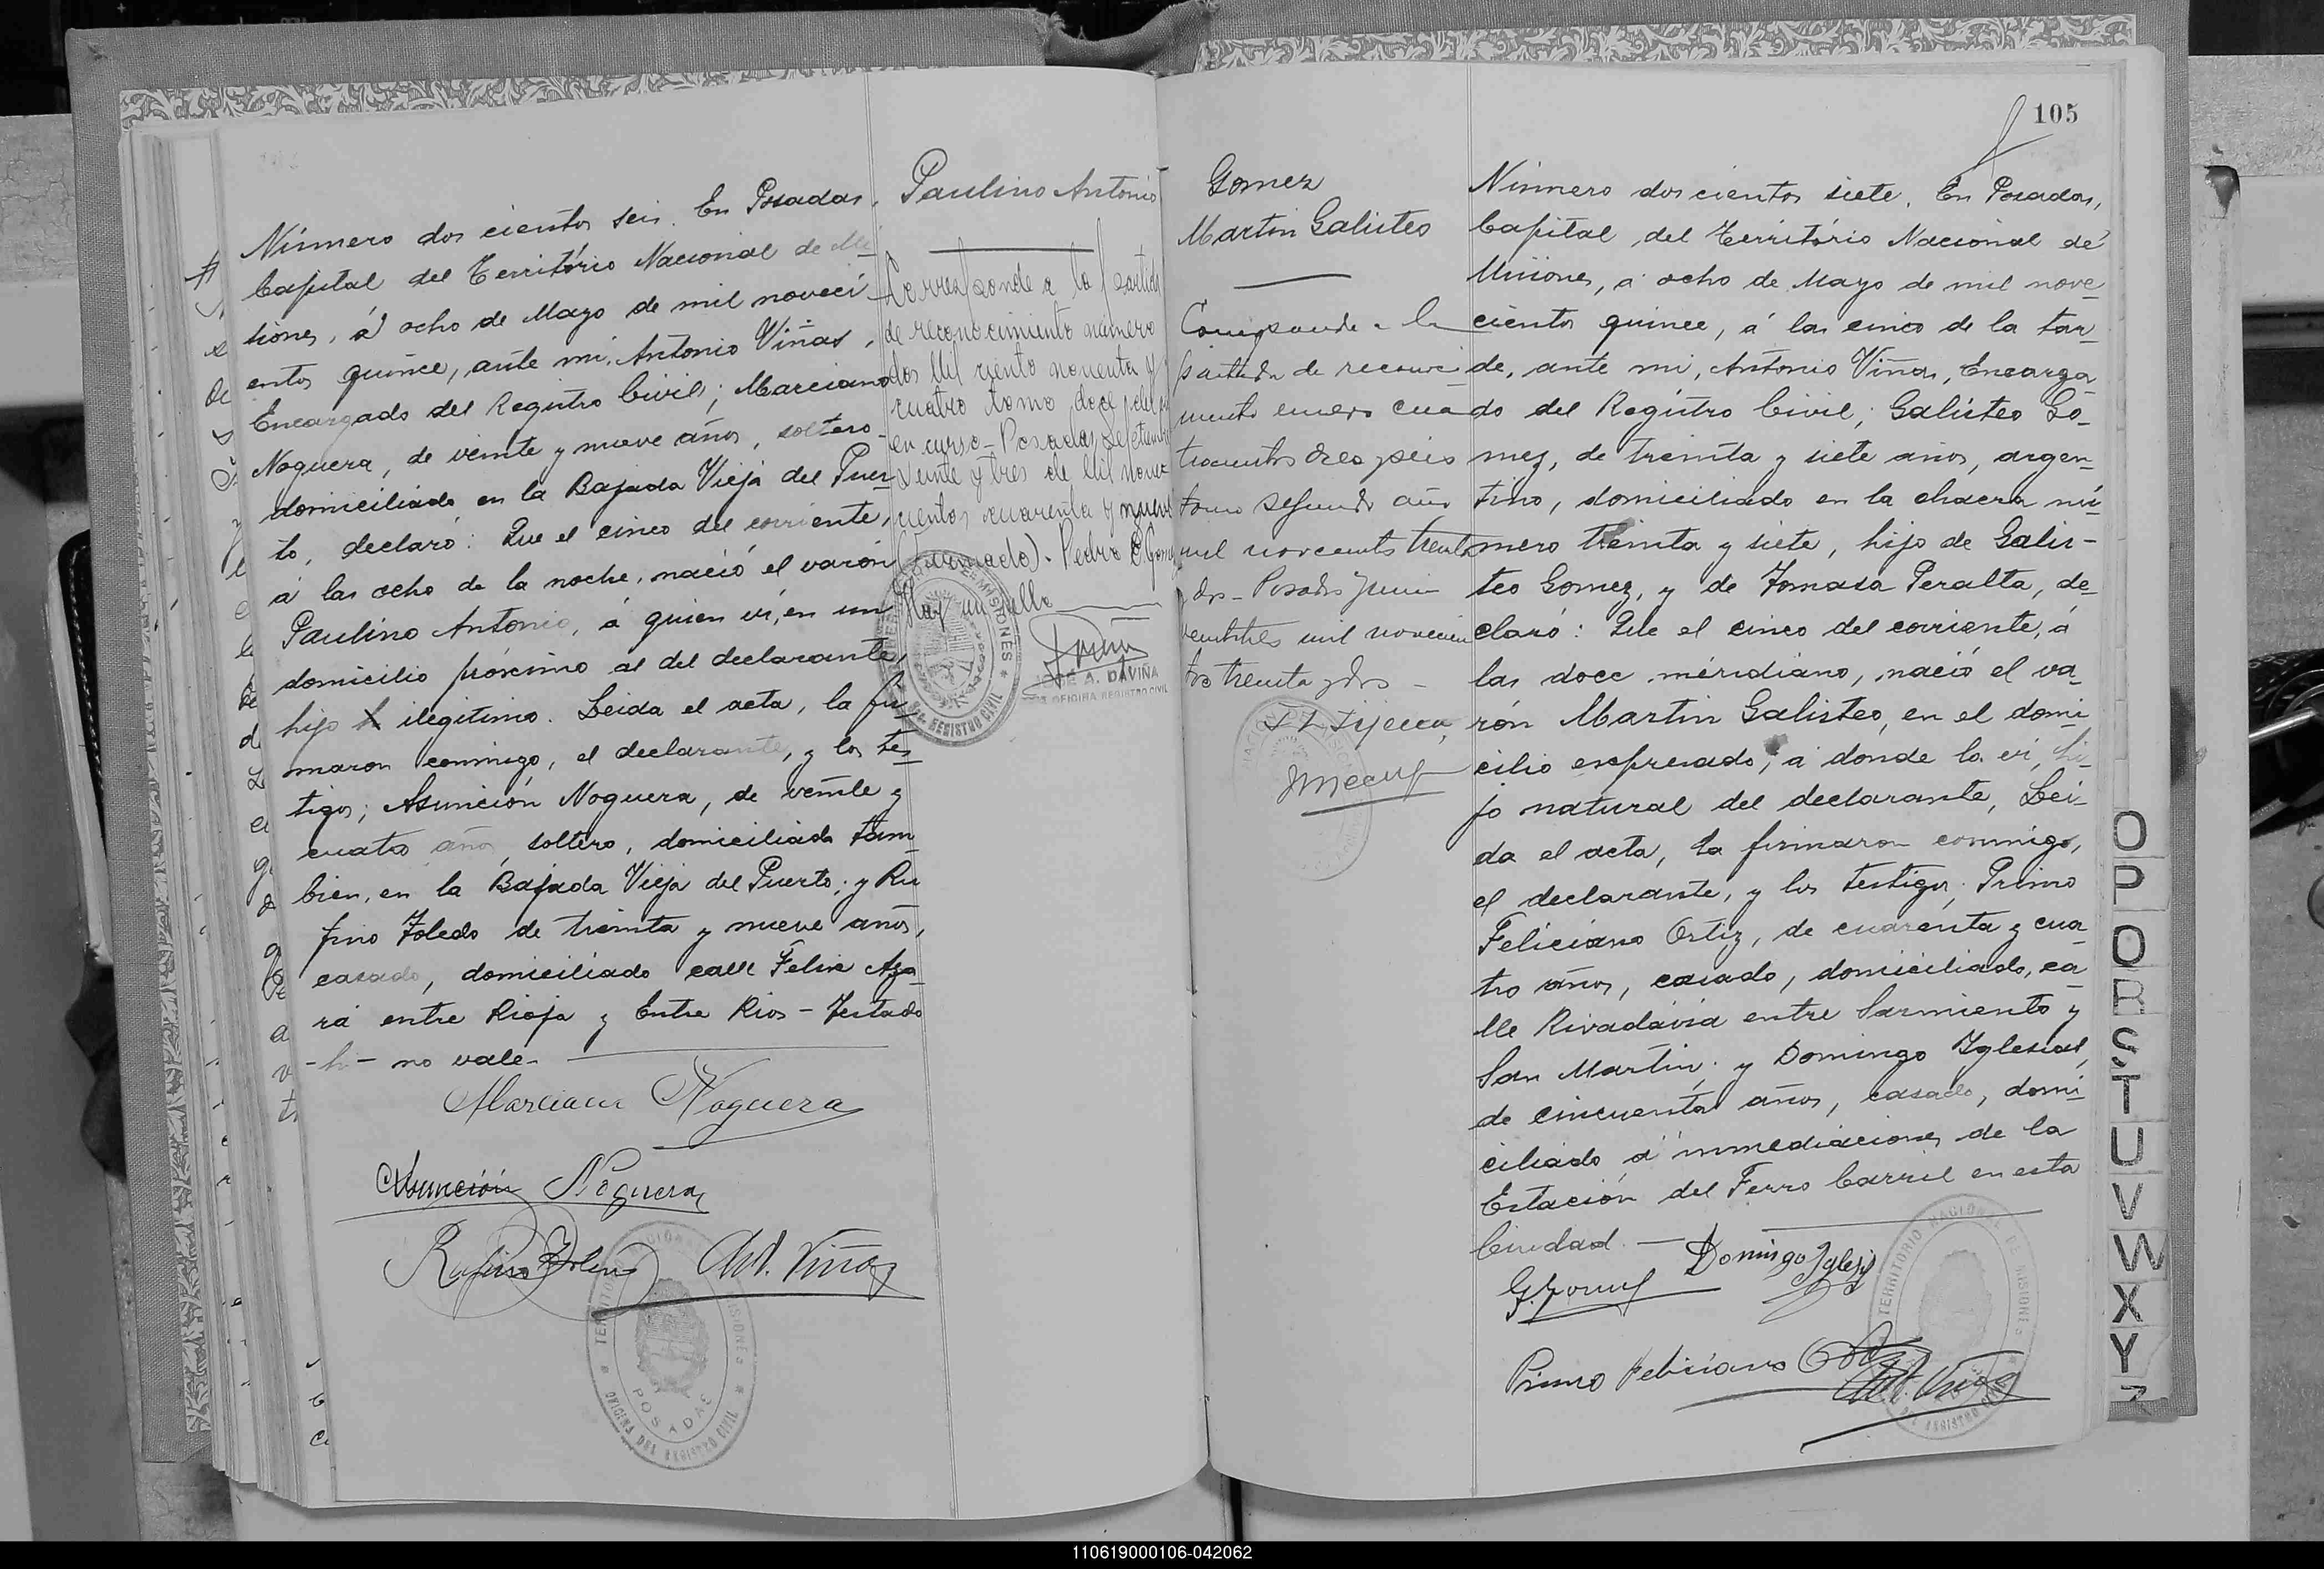 Número dos cientos seis. En Posadas,
Capital del Territorio Nacional de Mi-
siones, á ocho de Mayo de mil noveci-
entos quince, ante mi, Antonio Viñas,
Encargado del Registro Civil; Marciano
Noguera, de veinte y nueve años, soltero
domiciliado en la Bajada Vieja del Puer-
to, declaró: Que el cinco del corriente,
á las ocho de la noche, nació el varón
Paulino Antonio, á quien ví, en un
domicilio próximo al del declarante,
hijo h ilegitimo. Leida el acta, la fir-
maron conmigo, el declarante, y los tes-
tigos; Asunción Noguera, de veinte y
cuatro años, soltero, domiciliado tam-
bien, en la Bajada Vieja del Puerto; y Ru-
fino Toledo de treinta y nueve años,
casado, domiciliado calle Felix Aza-
rá entre Rioja y Entre Rios - Testado
-h- no vale-
Marciano Noguera
Asunción Noguera
Rufino Toledo Ant. Viñas
TERRITORIO NACIONAL DE MISIONES
POSADAS
OFICINA DEL REGISTRO CIVIL
Paulino Antonio
Corresponde a la partida
de reconocimiento número
dos Mil ciento noventa y
cuatro tomo doce del
en curso - Posadas Setiembre
veinte y tres de Mil nove
cientos cuarenta y nueve
(Firmado). Pedro
Hay un sello
JOSE A. DAVIÑA
OFICINA REGISTRO CIVIL
105
Gomez
Martin Galisteo
Corresponde a la
partida de reconoci
miento número cua
trocientos diez y seis
tomo segundo año
mil novecientos treinta
y dos - Posadas Junio
veintitres mil novecien
tos treinta y dos -
Número dos cientos siete. En Posadas,
Capital, del Territorio Nacional de
Misiones, á ocho de Mayo de mil nove-
cientos quince, á las cinco de la tar-
de, ante mi, Antonio Viñas, Encarga-
do del Registro Civil; Galisteo Gó-
mez, de treinta y siete años, argen-
tino, domiciliado en la chacra nú-
mero treinta y siete, hijo de Galis-
teo Gomez, y de Tomasa Peralta, de-
claró: Que el cinco del corriente, á
las doce meridiano, nació el va-
rón Martin Galisteo, en el domi-
cilio expresado, á donde lo ví, hi-
jo natural del declarante, Lei-
da el acta, la firmaron conmigo,
el declarante, y los testigos; Primo
Feliciano Ortiz, de cuarenta y cua-
tro años, casado, domiciliado, ca-
lle Rivadavia entre Sarmiento y
San Martin; y Domingo Yglesias,
de cincuenta años, casado, domi-
ciliado á inmediaciones de la
Estación del Ferro Carril en esta
Ciudad. —
Domingo Iglesias
G. Gomez
Primo Feliciano Ortiz
Ant. Viñas
O
P
Q
R
S
T
U
V
W
X
Y
Z
110619000106-042062